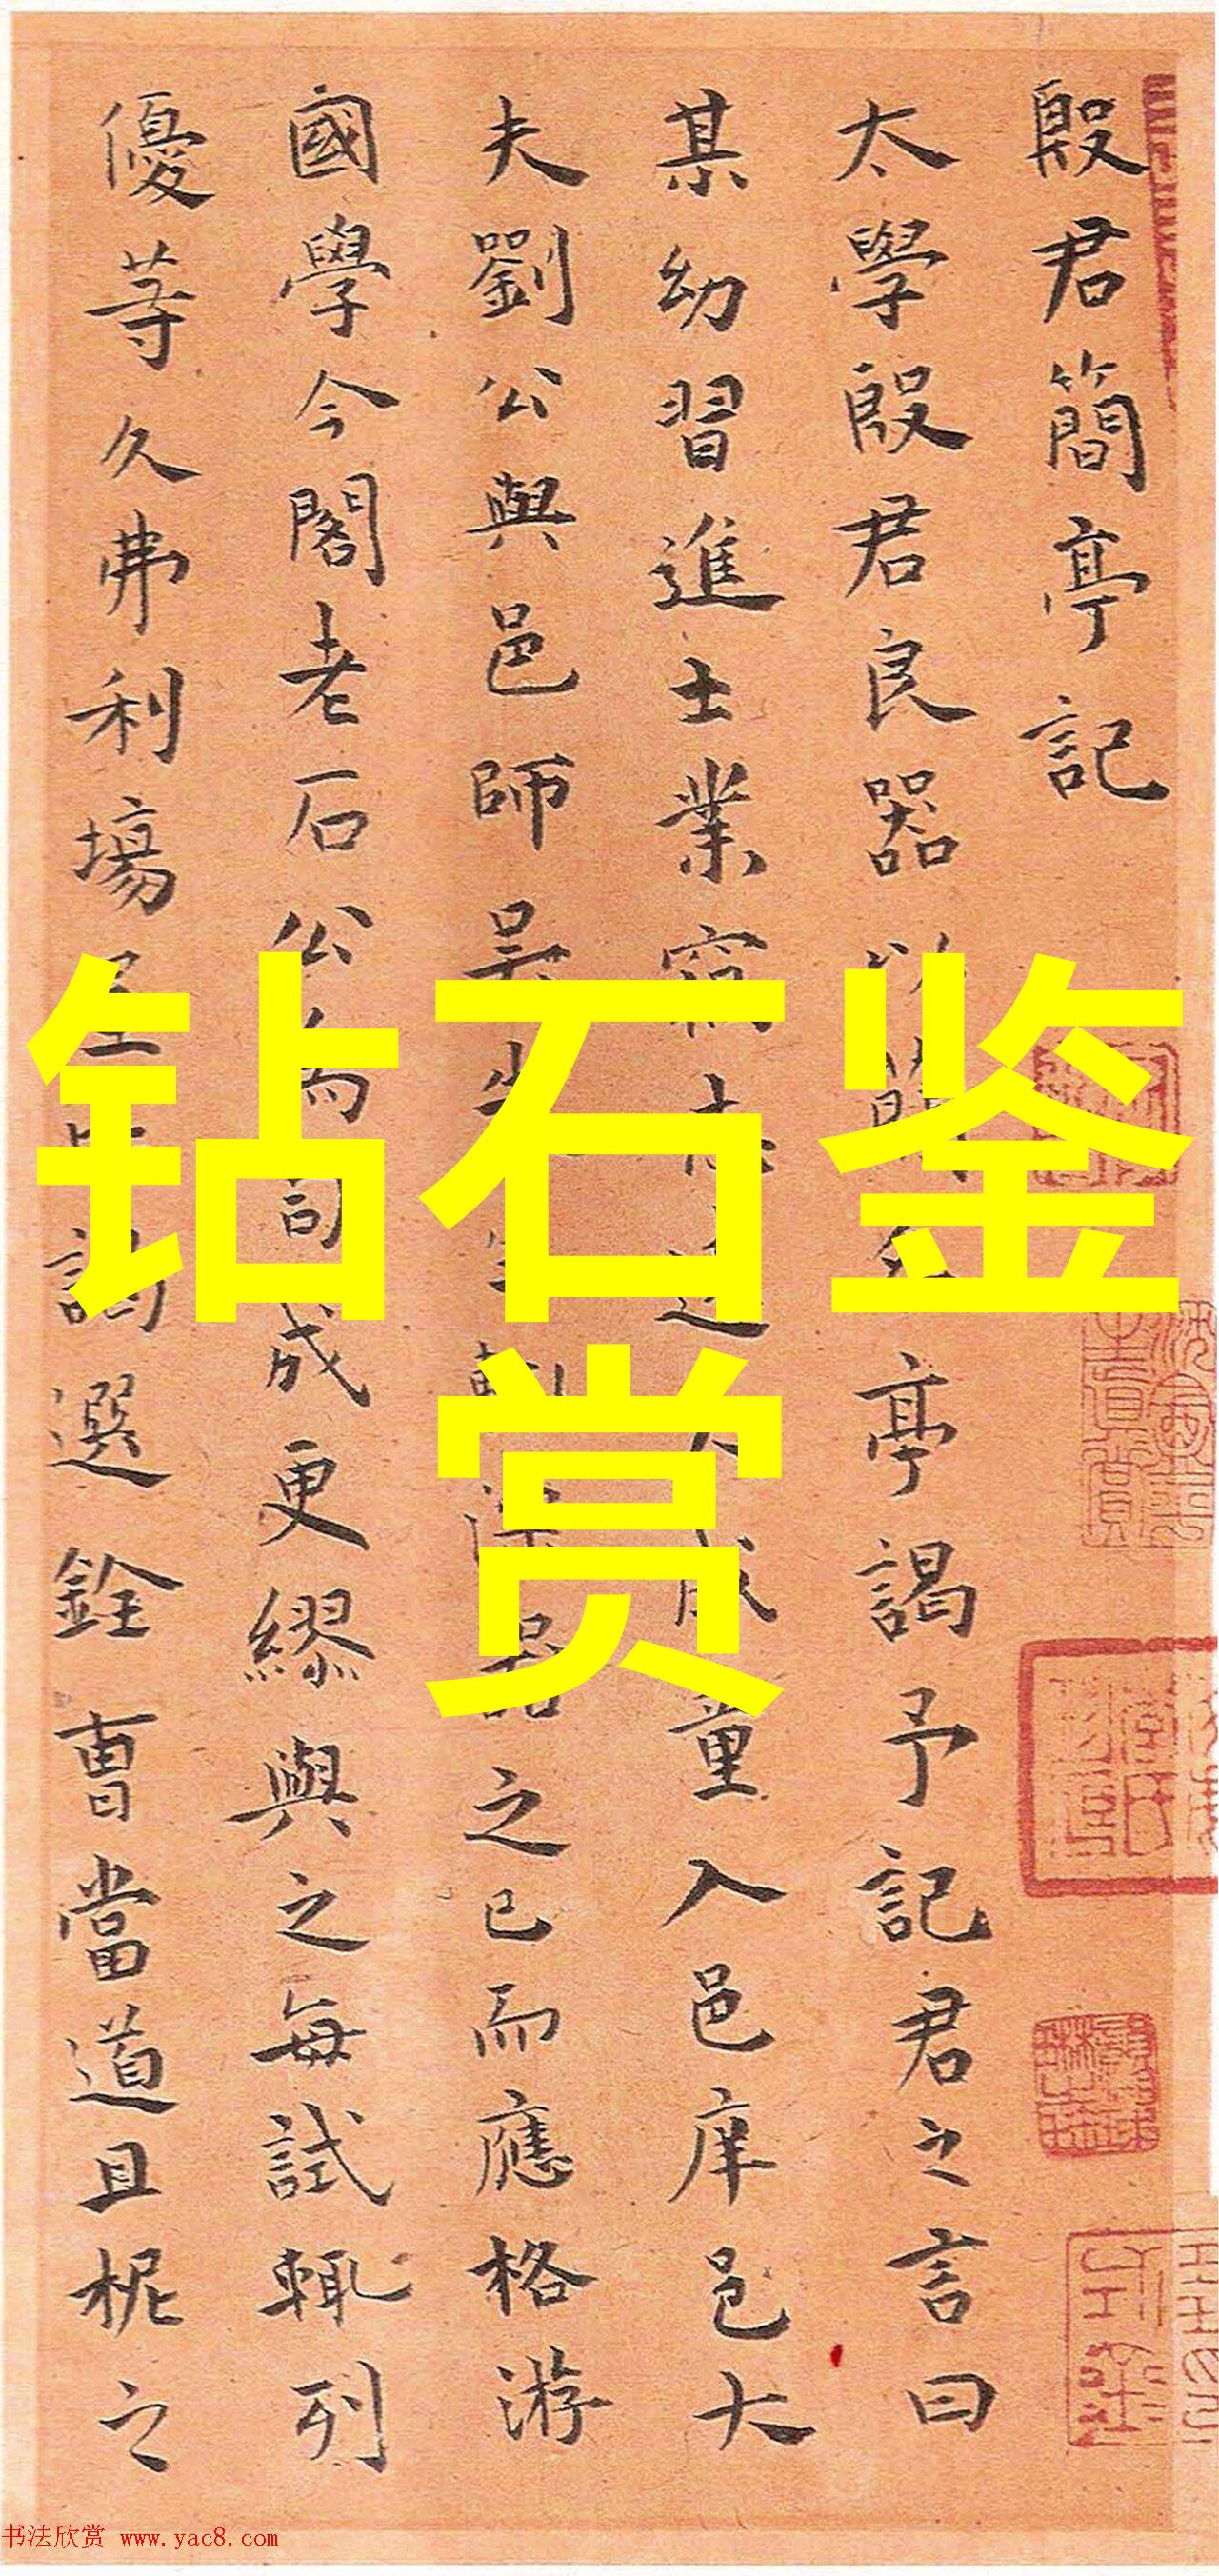 殷君簡亭記
太學殷君良器以簡名亭謁予記君之言曰
某幼習進士業竊志成童入邑庠邑大
夫劉公與邑師吴先生輒器之已而應格游
國學今閣老石公為司成更繆與之每試輒列
優等久弗利場屋謁選銓曹當道且柅之
钻石鉴
赏
书法欣赏 www.yac8.com